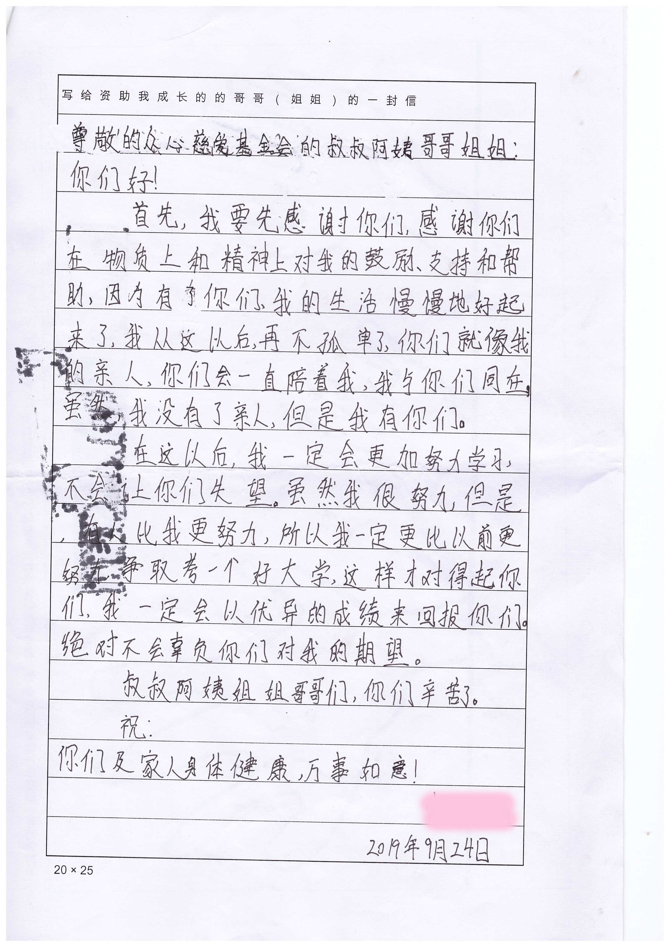 写给资助我成长的的哥哥(姐姐)的一封信
尊敬的众心慈爱基金会的叔叔阿姨哥哥姐姐:
你们好!
首先,我要先感谢你们,感谢你们
在物质上和精神上对我的鼓励、支持和帮
助,因为有了你们、我的生活慢慢地好起
来了,我从这以后,再不孤单了,你们就像我
的亲人,你们会一直陪着我,我与你们同在,
虽然,我没有了亲人,但是我有你们。
在这以后,我一定会更加努力学习,
不会让你们失望。虽然我很努力,但是
,有人比我更努力,所以我一定更比以前更
努力争取考一个好大学,这样才对得起你
们,我一定会以优异的成绩来回报你们。
绝对不会辜负你们对我的期望。
叔叔阿姨姐姐哥哥们,你们辛苦了。
祝:
你们及家人身体健康,万事如意!
2019年9月24日
20×25